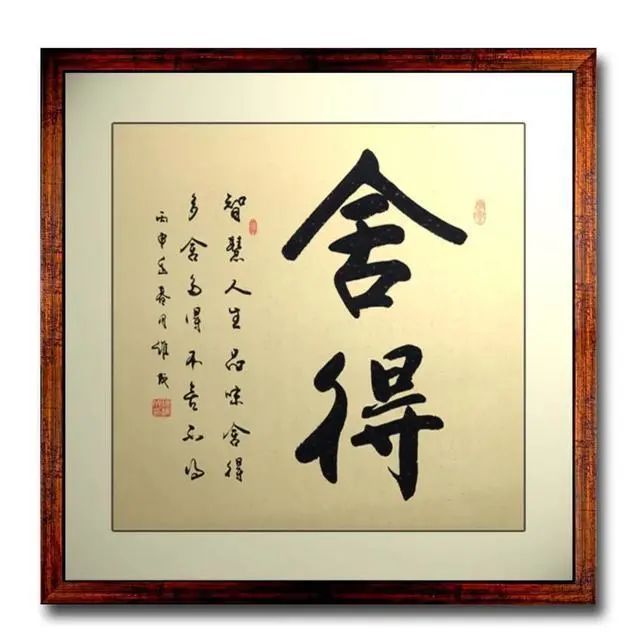 舍得
智慧人生品味舍得
多舍多得不舍不得
丙申年春月